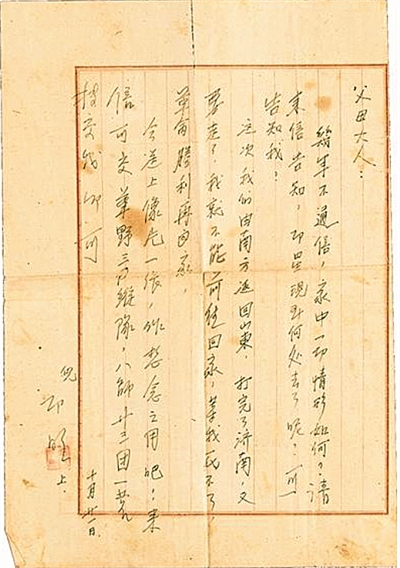 父母大人：
幾年不通信，家中一切情形如何？請
来信告知，印星現到何处去了呢？可一
告知我！
这次我们由南方返回山東，打完了济南，又
要走了，我就不能前往回家，等我
革命勝利再回家，
今送上像片一張，作想念之用吧！来
信可交華野三縱隊，八師廿三团一营
我即可
兒 印 上．
十月廿一日．